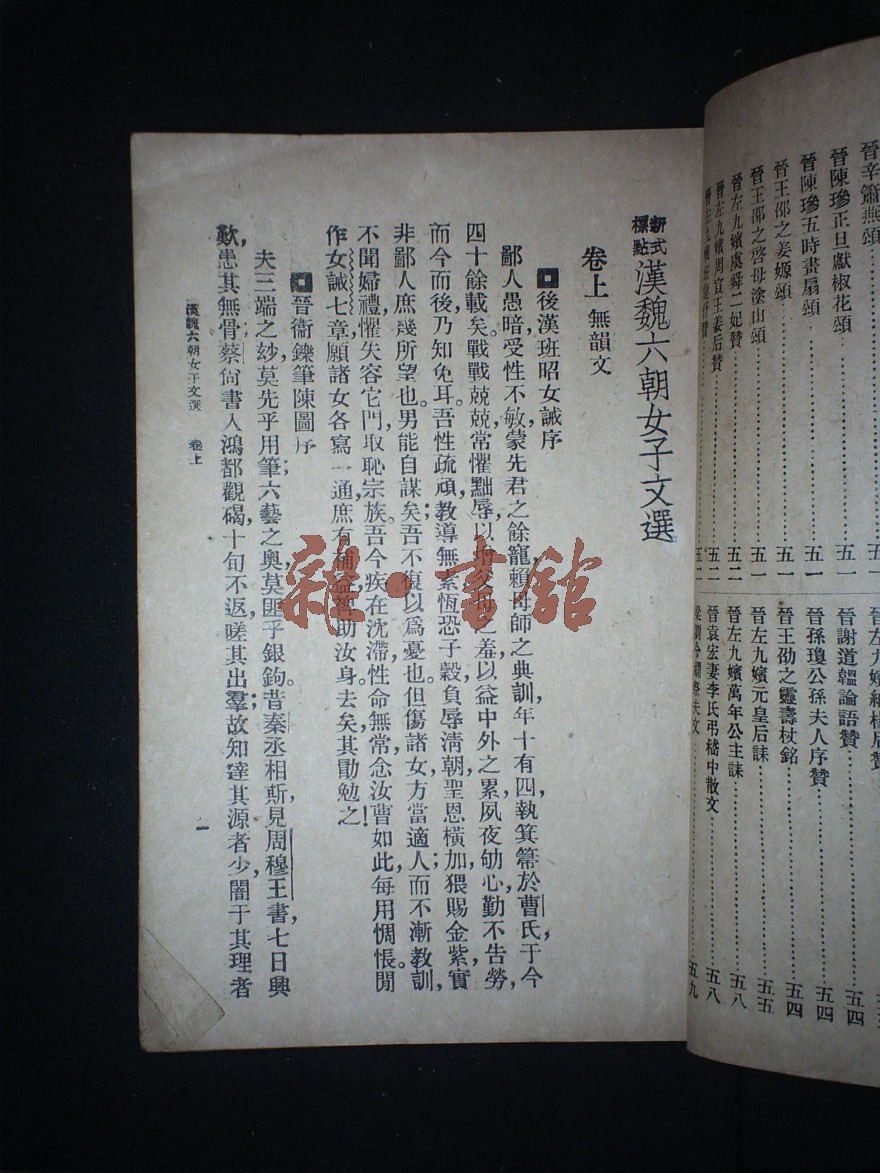 晉辛蕭燕頌
晉陳㻸正旦獻椒花頌……五一
晉陳㻸五時畫扇頌……五一
晉王邵之姜嫄頌……五一
晉王邵之啓母塗山頌……五一
晉左九嬪虞舜二妃贊……五二
晉左九嬪周宣王姜后贊……五二
晉左九嬪班婕妤贊……五二
左九嬪 楊后贊
晉謝道韞論語贊……五四
晉孫瓊公孫夫人序贊……五四
晉王劭之靈壽杖銘……五四
晉左九嬪元皇后誄……五五
晉左九嬪萬年公主誄……五八
晉袁宏妻李氏弔嵇中散文……五八
梁劉令嫺祭夫文……五九
新式標點 漢魏六朝女子文選
卷上 無韻文
後漢班昭女誡序
鄙人愚暗，受性不敏，蒙先君之餘寵，賴母師之典訓，年十有四，執箕箒於曹氏，于今
四十餘載矣。戰戰兢兢，常懼黜辱，以增父母之羞，以益中外之累，夙夜劬心，勤不告勞，
而今而後，乃知免耳。吾性疏頑，教導無素，恆恐子穀，負辱清朝；聖恩橫加，猥賜金紫，實
非鄙人庶幾所望也。男能自謀矣，吾不復以爲憂也；但傷諸女，方當適人，而不漸教訓，
不聞婦禮，懼失容它門，取恥宗族。吾今疾在沈滯，性命無常，念汝曹如此，每用惆悵。閒
作女誡七章，願諸女各寫一通，庶有補益，裨助汝身。去矣，其勖勉之！
晉衞鑠筆陳圖序
夫三端之玅，莫先乎用筆；六藝之奧，莫匪乎銀鉤。昔秦丞相斯，見周穆王書，七日興
歎，患其無骨；蔡尙書入鴻都觀碣，十旬不返，嗟其出羣；故知達其源者少，闇于其理者
漢魏六朝女子文選 卷上
一
雜·書館